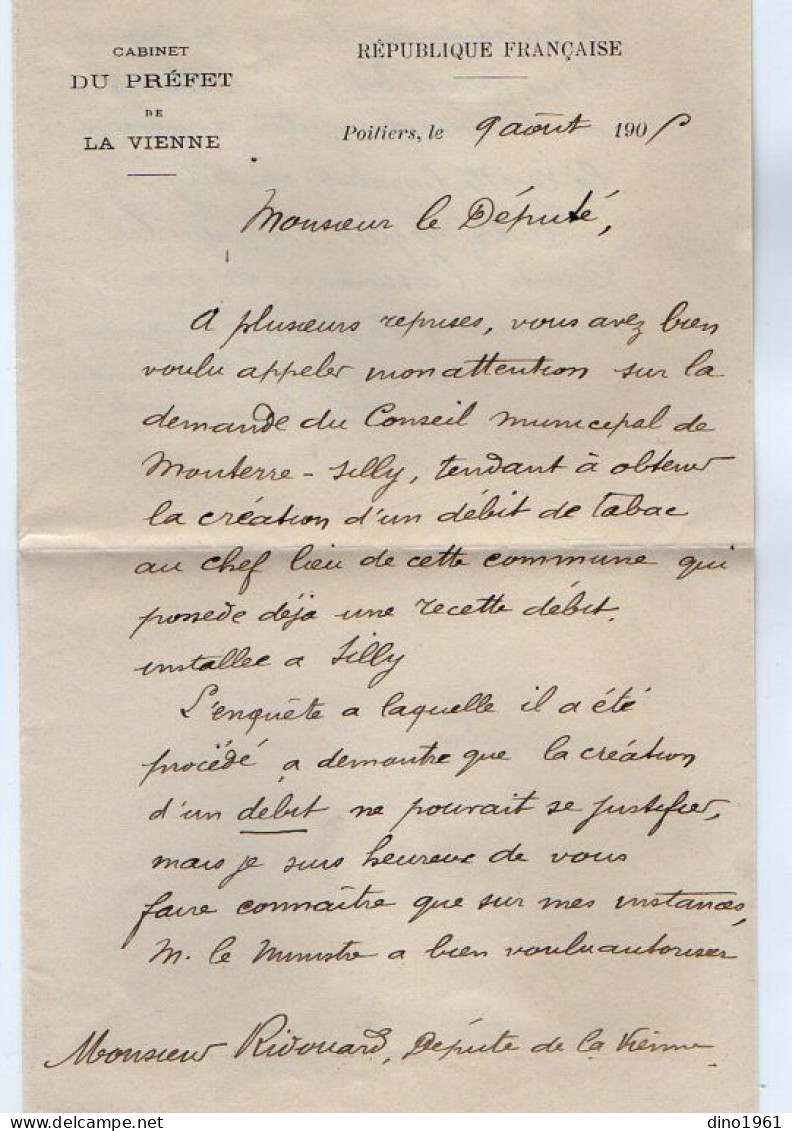 CABINET
DU PRÉFET
DE
LA VIENNE
RÉPUBLIQUE FRANÇAISE
Poitiers, le 9 août 1905
Monsieur le Député,
A plusieurs reprises, vous avez bien
voulu appeler mon attention sur la
demande du Conseil municipal de
Monterre-Silly, tendant à obtenir
la création d'un débit de tabac
au chef lieu de cette commune qui
possede déja une recette débit.
installee a Silly
L'enquête a laquelle il a été
procédé a demontre que la création
d'un debit ne pourait se justifier,
mais je suis heureux de vous
faire connaître que sur mes instances,
M. le Ministre a bien voulu autoriser
Monsieur Ridouard, Députe de la Vienne
dino1961